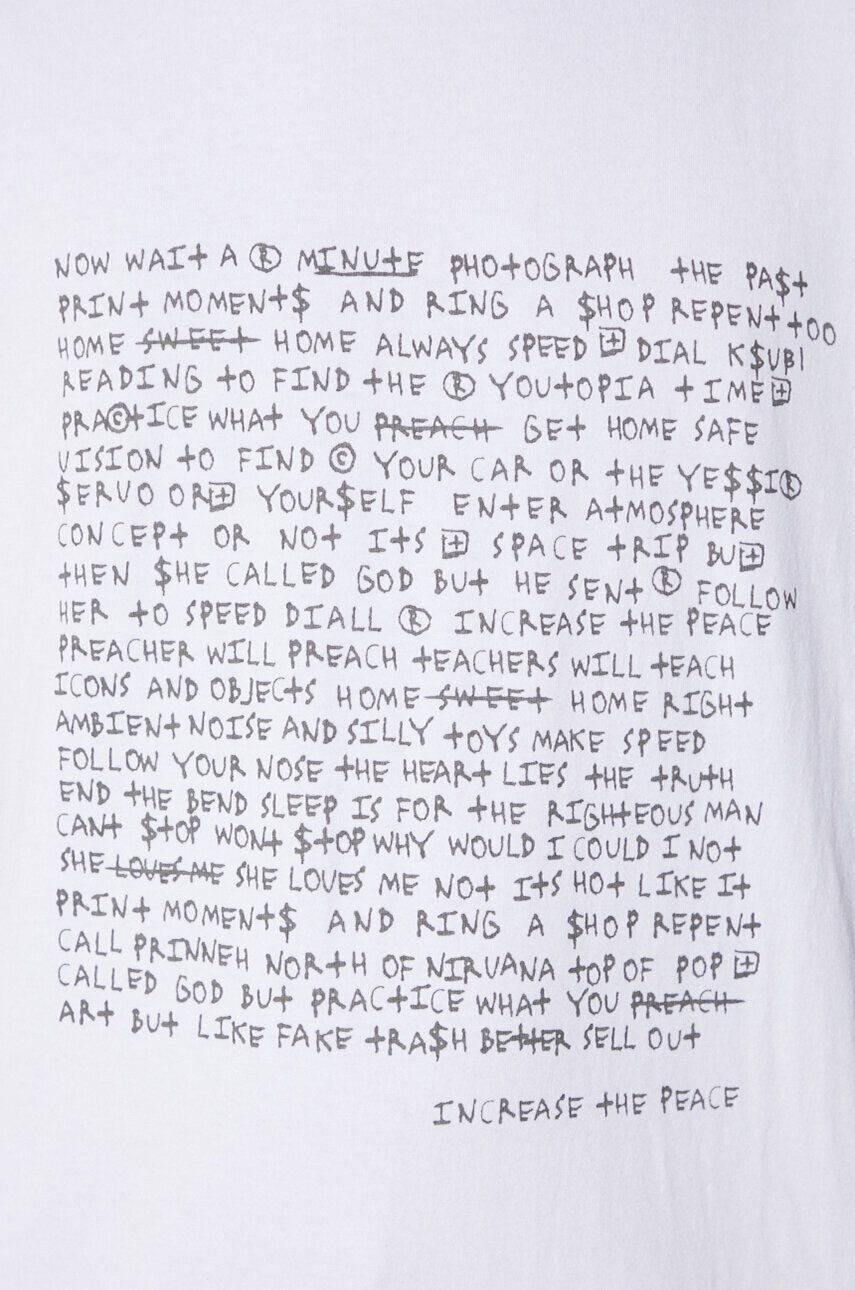 NOW WAIT A ® MINUTE PHOTOGRAPH THE PA$T
PRINT MOMENT$ AND RING A $HOP REPENT TOO
HOME SWEET HOME ALWAYS SPEED ⊞ DIAL K$UBI
READING TO FIND THE ® YOUTOPIA TIME ⊞
PRA©TICE WHAT YOU PREACH GET HOME SAFE
VISION TO FIND © YOUR CAR OR THE YE$$I®
$ERVO OR⊞ YOUR$ELF ENTER ATMOSPHERE
CONCEPT OR NOT ITS ⊞ SPACE TRIP BU⊞
THEN $HE CALLED GOD BUT HE SENT ® FOLLOW
HER TO SPEED DIALL ® INCREASE THE PEACE
PREACHER WILL PREACH TEACHERS WILL TEACH
ICONS AND OBJECTS HOME SWEET HOME RIGHT
AMBIENT NOISE AND SILLY TOYS MAKE SPEED
FOLLOW YOUR NOSE THE HEART LIES THE TRUTH
END THE BEND SLEEP IS FOR THE RIGHTEOUS MAN
CANT $TOP WONT $TOP WHY WOULD I COULD I NOT
SHE LOVES ME SHE LOVES ME NOT ITS HOT LIKE IT
PRINT MOMENT$ AND RING A $HOP REPENT
CALL PRINNEH NORTH OF NIRVANA TOP OF POP ⊞
CALLED GOD BUT PRACTICE WHAT YOU PREACH
ART BUT LIKE FAKE TRA$H BETTER SELL OUT
INCREASE THE PEACE